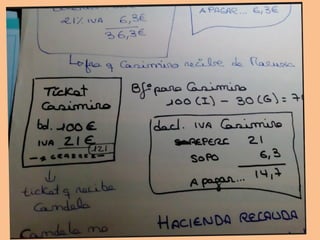 21% IVA 6,3€
36,3€
A PAGAR... 6,3€
q Casimiro recibe de Maruxa
Ticket
Casimiro
bI. 100€
IVA 21€
121
Bfi para Casimiro
100(I) - 30(G) = 7
decl. IVA Casimiro
REPERC 21
SOPO 6,3
A pagar... 14,7
ticket q recibe
Candela
HACIENDA RECAUDA
Candela no